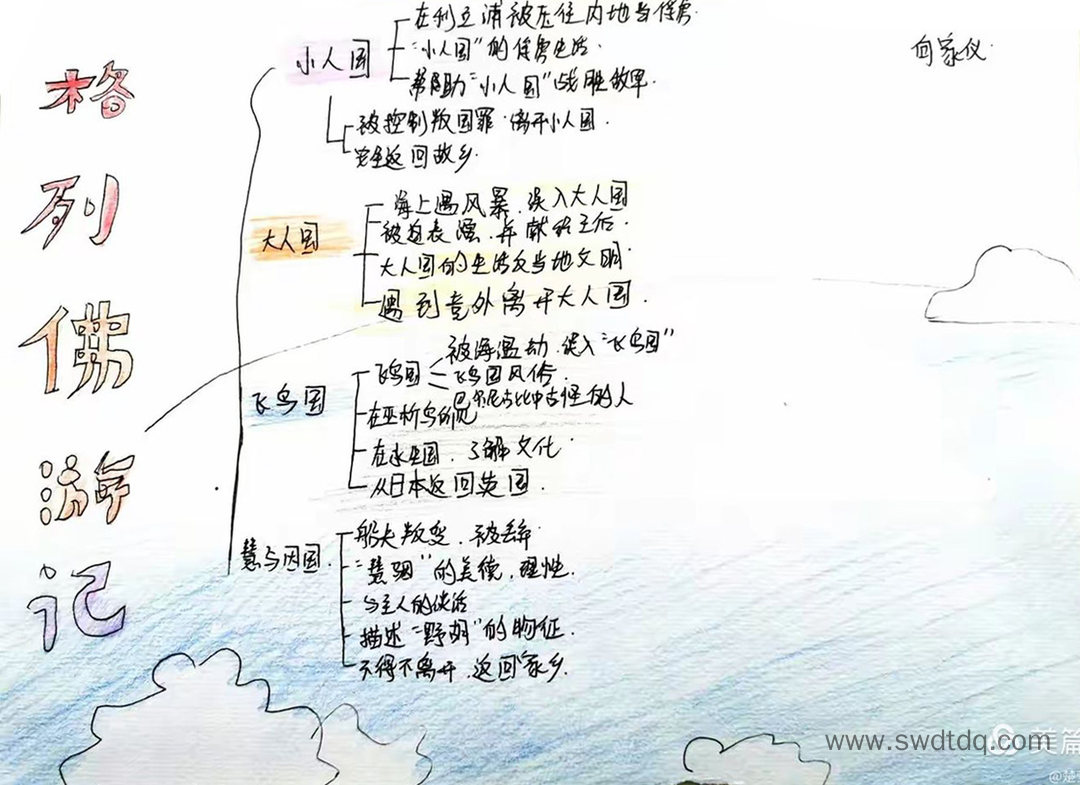 格列佛游记
向家仪
小人国
在利立浦被压往内地当俘虏
"小人国"的俘虏生活
帮助"小人国"战胜敌军
被控制叛国罪 离开小人国.
安全返回故乡.
大人国
海上遇风暴.误入大人国
被迫表演.并献给王后.
大人国的生活及当地文明
遇到意外离开大人国.
飞鸟国
飞鸟国
被海盗劫.误入"飞鸟国"
飞鸟国风俗.
古怪的人
在巫析岛所见
了解文化
从日本返回英国.
国.
船夫叛变.被丢弃
"慧骃"的美德.理性.
与主人的谈话
描述"野胡"的物征.
不得不离开.返回家乡.
www.swdtdq.com
美篇
@楚